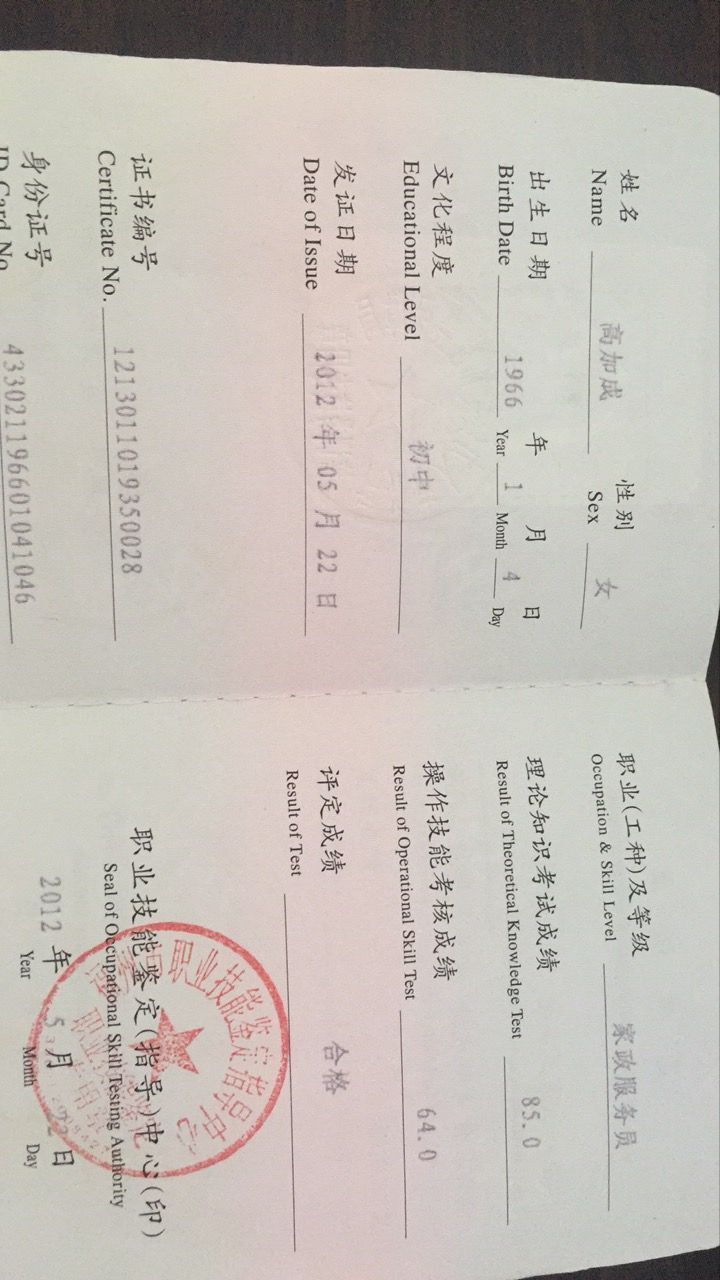 姓名 高加成 性别 女
Name Sex
出生日期 1966 年 1 月 4 日
Birth Date Year Month Day
文化程度 初中
Educational Level
发证日期 2012 年 05 月 22 日
Date of Issue
证书编号 1213011019350028
Certificate No.
身份证号 433021196601041046
ID Card No.
职业(工种)及等级 家政服务员
Occupation & Skill Level
理论知识考试成绩 85.0
Result of Theoretical Knowledge Test
操作技能考核成绩 64.0
Result of Operational Skill Test
评定成绩 合格
Result of Test
职业技能鉴定(指导)中心(印)
Seal of Occupational Skill Testing Authority
职业技能鉴定指导中心
2012 年 5 月 22 日
Year Month Day